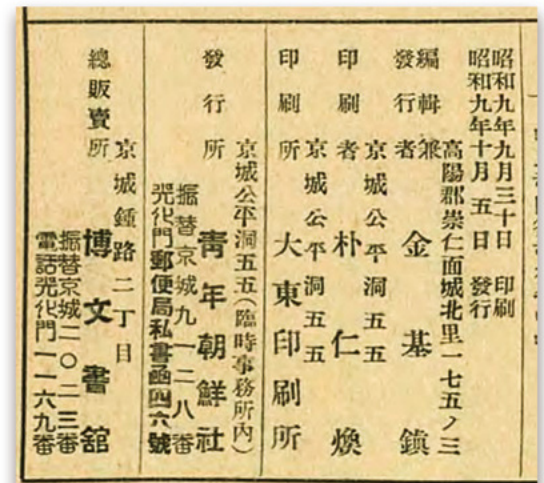 昭和九年九月三十日 印刷
昭和九年十月五日 發行
高陽郡崇仁面城北里一七五ノ三
編輯兼
發行者 金基鎮
京城公平洞五五
印刷者 朴仁煥
京城公平洞五五
印刷所 大東印刷所
京城公平洞五五(臨時事務所內)
發行所 靑年朝鮮社
振替京城九一二八番
光化門郵便局私書函四六號
京城鍾路二丁目
總販賣所 博文書舘
振替京城二〇二三番
電話光化門一一六九番